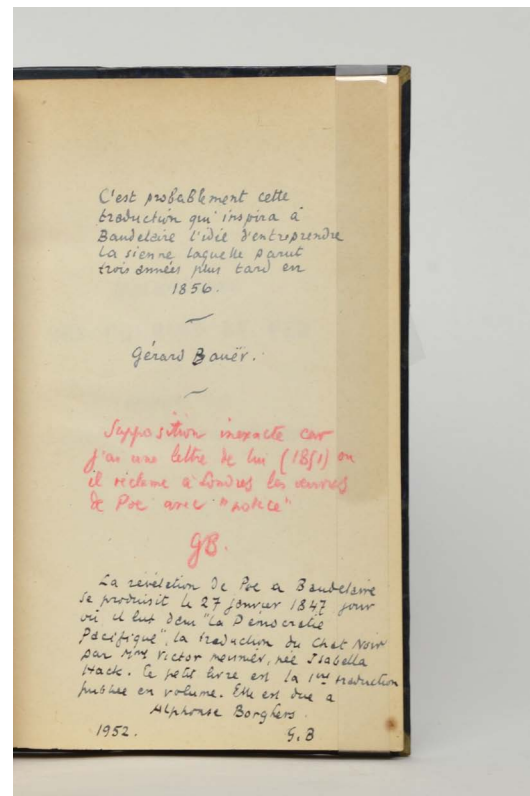 C'est probablement cette
traduction qui inspira à
Baudelaire l'idée d'entreprendre
la sienne laquelle parut
trois années plus tard en
1856.
Gérard Bauër.
Supposition inexacte car
j'ai une lettre de lui (1851) où
il réclame à Londres les œuvres
de Poe avec "notice"
GB.
La révélation de Poe a Baudelaire
se produisit le 27 janvier 1847 jour
où il lut dans "La Démocratie
Pacifique", la traduction du Chat Noir
par Mme Victor Meunier, née Isabella
Hack. Ce petit livre est la 1ère traduction
publiée en volume. Elle est due a
Alphonse Borghers.
1952. G.B